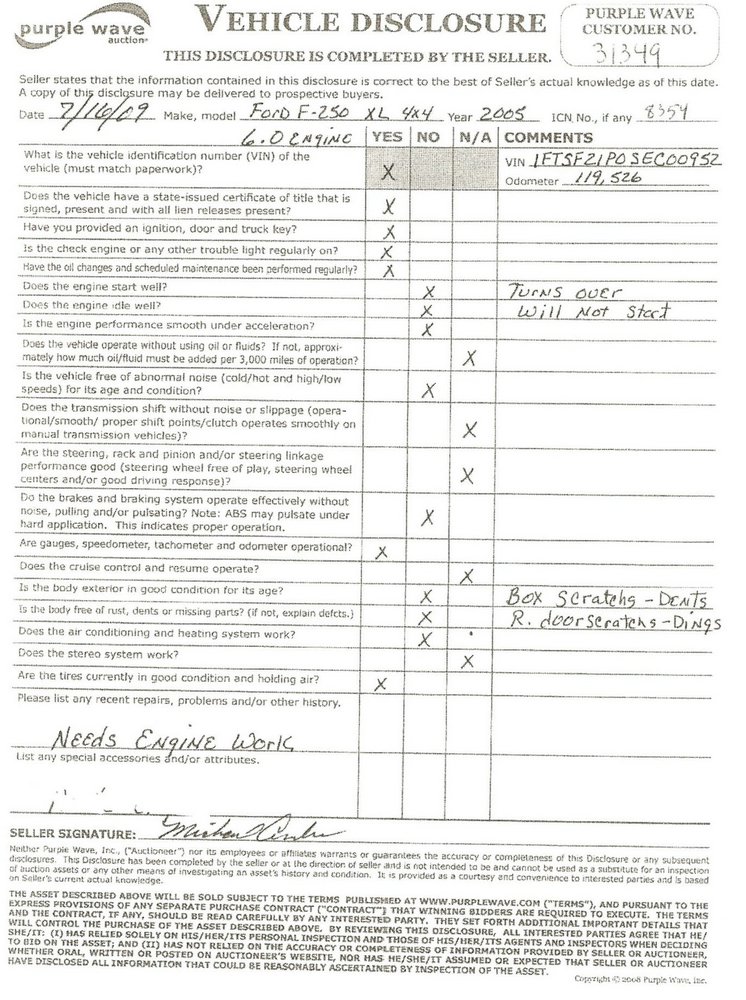 purple wave
auction®
VEHICLE DISCLOSURE
THIS DISCLOSURE IS COMPLETED BY THE SELLER.
PURPLE WAVE
CUSTOMER NO.
31349
Seller states that the information contained in this disclosure is correct to the best of Seller's actual knowledge as of this date.
A copy of this disclosure may be delivered to prospective buyers.
Date 7/16/09 Make, model Ford F-250 XL 4x4 Year 2005 ICN No., if any 8354
6.0 ENGINE YES NO N/A COMMENTS
What is the vehicle identification number (VIN) of the
vehicle (must match paperwork)? X
VIN 1FTSF21P05EC00952
Odometer 119,526
Does the vehicle have a state-issued certificate of title that is
signed, present and with all lien releases present? X
Have you provided an ignition, door and truck key? X
Is the check engine or any other trouble light regularly on? X
Have the oil changes and scheduled maintenance been performed regularly? X
Does the engine start well? X Turns over
Does the engine idle well? X Will Not Start
Is the engine performance smooth under acceleration? X
Does the vehicle operate without using oil or fluids? If not, approxi-
mately how much oil/fluid must be added per 3,000 miles of operation? X
Is the vehicle free of abnormal noise (cold/hot and high/low
speeds) for its age and condition? X
Does the transmission shift without noise or slippage (opera-
tional/smooth/ proper shift points/clutch operates smoothly on
manual transmission vehicles)? X
Are the steering, rack and pinion and/or steering linkage
performance good (steering wheel free of play, steering wheel
centers and/or good driving response)? X
Do the brakes and braking system operate effectively without
noise, pulling and/or pulsating? Note: ABS may pulsate under
hard application. This indicates proper operation. X
Are gauges, speedometer, tachometer and odometer operational? X
Does the cruise control and resume operate? X
Is the body exterior in good condition for its age? X Box Scratchs - Dents
Is the body free of rust, dents or missing parts? (if not, explain defcts.) X R. door scratchs - Dings
Does the air conditioning and heating system work? X
Does the stereo system work? X
Are the tires currently in good condition and holding air? X
Please list any recent repairs, problems and/or other history.
Needs Engine Work
List any special accessories and/or attributes.
SELLER SIGNATURE:
Neither Purple Wave, Inc., ("Auctioneer") nor its employees or affiliates warrants or guarantees the accuracy or completeness of this Disclosure or any subsequent
disclosures. This Disclosure has been completed by the seller or at the direction of seller and is not intended to be and cannot be used as a substitute for an inspection
of auction assets or any other means of investigating an asset's history and condition. It is provided as a courtesy and convenience to interested parties and is based
on Seller's current actual knowledge.
THE ASSET DESCRIBED ABOVE WILL BE SOLD SUBJECT TO THE TERMS PUBLISHED AT WWW.PURPLEWAVE.COM ("TERMS"), AND PURSUANT TO THE
EXPRESS PROVISIONS OF ANY SEPARATE PURCHASE CONTRACT ("CONTRACT") THAT WINNING BIDDERS ARE REQUIRED TO EXECUTE. THE TERMS
AND THE CONTRACT, IF ANY, SHOULD BE READ CAREFULLY BY ANY INTERESTED PARTY. THEY SET FORTH ADDITIONAL IMPORTANT DETAILS THAT
WILL CONTROL THE PURCHASE OF THE ASSET DESCRIBED ABOVE. BY REVIEWING THIS DISCLOSURE, ALL INTERESTED PARTIES AGREE THAT HE/
SHE/IT: (I) HAS RELIED SOLELY ON HIS/HER/ITS PERSONAL INSPECTION AND THOSE OF HIS/HER/ITS AGENTS AND INSPECTORS WHEN DECIDING
TO BID ON THE ASSET; AND (II) HAS NOT RELIED ON THE ACCURACY OR COMPLETENESS OF INFORMATION PROVIDED BY SELLER OR AUCTIONEER,
WHETHER ORAL, WRITTEN OR POSTED ON AUCTIONEER'S WEBSITE, NOR HAS HE/SHE/IT ASSUMED OR EXPECTED THAT SELLER OR AUCTIONEER
HAVE DISCLOSED ALL INFORMATION THAT COULD BE REASONABLY ASCERTAINED BY INSPECTION OF THE ASSET.
Copyright © 2008 Purple Wave, Inc.